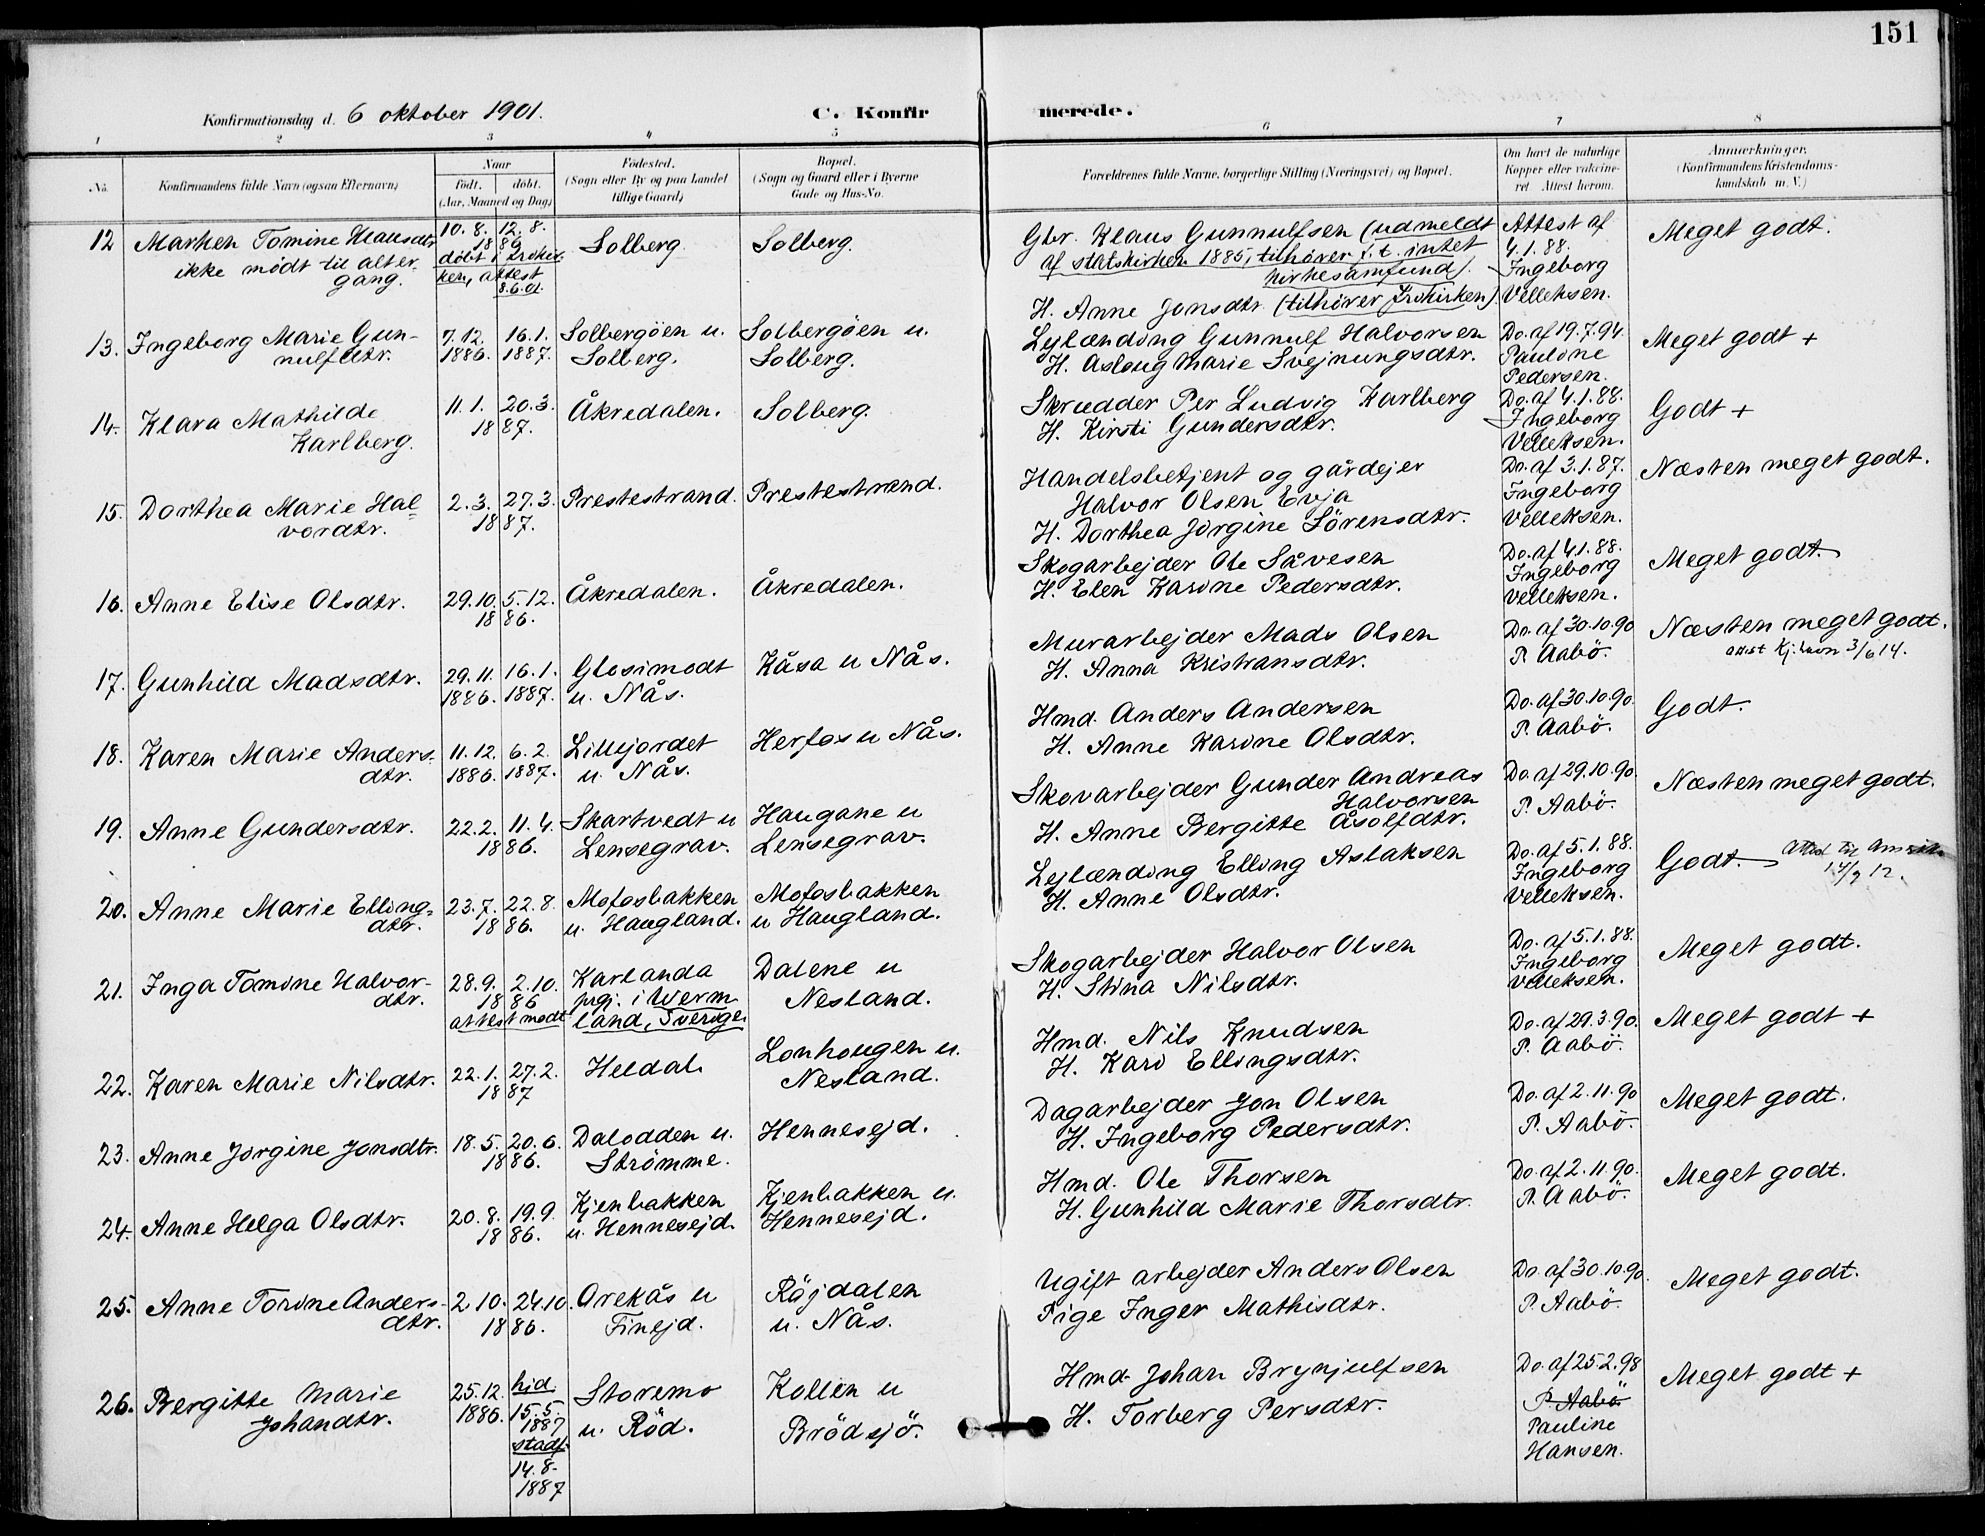 151
Konfirmationsdag d. 6 oktober 1901.
C. Konfirmerede.
1 2 3 4 5 6 7 8
No.
Konfirmandens fulde Navn (ogsaa Efternavn)
Naar
født. døbt.
(Aar, Maaned og Dag)
Fødested.
(Sogn eller By og paa Landet
tillige Gaard)
Bopæl.
(Sogn og Gaard eller i Byerne
Gade og Hus-No.
Forældrenes fulde Navne, borgerlige Stilling (Næringsvei) og Bopæl.
Om havt de naturlige
Kopper eller vakcine-
ret Attest herom.
Anmærkninger.
(Konfirmandens Kristendoms-
kundskab m. V.)
12 Marken Tomine Klausdtr
ikke mödt til alter
gang.
10.8. 12.8.
1886
döbt i frekir
ken, attest
8.6.01.
Solberg.
Solberg.
Gbr. Klaus Gunnulfsen (udmeldt
af statskirken 1885, tilhörer p.t. intet
kirkesamfund).
H. Anne Jonsdtr. (tilhörer frekirken).
Attest af
4.1.88.
Ingeborg
Velleksen.
Meget godt.
13. Ingeborg Marie Gun-
nulfdtr.
7.12. 16.1.
1886. 1887.
Solbergöen u.
Solberg.
Solbergöen u.
Solberg.
Lejlænding Gunnulf Halvorsen
H. Aslaug Marie Svejnungsdtr.
Do. af 19.7.94.
Pauline
Pedersen.
Meget godt +
14. Klara Mathilde
Karlberg.
11.1. 20.3.
1887.
Åkredalen.
Solberg.
Skrædder Per Ludvig Karlberg
H. Kirsti Gundersdtr.
Do. af 4.1.88.
Ingeborg
Velleksen.
Godt +
15. Dorthea Marie Hal=
vordtr.
2.3. 27.3.
1887.
Prestestrand.
Prestestrand.
Handelsbetjent og gårdejer
Halvor Olsen Evja
H. Dorthea Jörgine Sörensdtr.
Do. af 3.1.87.
Ingeborg
Velleksen.
Næsten meget godt.
16. Anne Elise Olsdtr.
29.10. 5.12.
1886.
Åkredalen.
Åkredalen.
Skogarbejder Ole Såvesen
H. Elen Karine Pedersdtr.
Do. af 4.1.88.
Ingeborg
Velleksen.
Meget godt.
17. Gunhild Madsdtr.
29.11. 16.1.
1886. 1887.
Glosimodt
u. Nås.
Kåsa u Nås.
Murarbejder Mads Olsen
H. Anna Kristiansdtr.
Do. af 30.10.90
P. Aabö.
Næsten meget godt.
attest Kj.havn 3/6 14.
18. Karen Marie Anders-
dtr.
11.12. 6.2.
1886. 1887.
Lillejordet
u. Nås.
Herfos u Nås.
Hmd. Anders Andersen
H. Anne Karine Olsdtr.
Do. af 30.10.90.
P. Aabö.
Godt.
19. Anne Gundersdtr.
22.2. 11.4.
1886.
Skartvedt u
Lensegrav.
Haugane u
Lensegrav.
Skovarbejder Gunder Andreas
Halvorsen
H. Anne Bergitte Åsolfdtr.
Do. af 29.10.90.
P. Aabö.
Næsten meget godt.
20. Anne Marie Elling=
dtr.
23.7. 22.8.
1886.
Mofosbakken
u. Haugland.
Mofosbakken
u Haugland.
Lejlænding Elling Aslaksen
H. Anne Olsdtr.
Do. af 5.1.88.
Ingeborg
Velleksen.
Godt.
21. Inga Tomine Halvor-
dtr.
28.9. 2.10.
1886
attest mødt
Karlanda
prgj. i Werm
land, Sverige.
Dalene u
Nesland.
Skogarbejder Halvor Olsen
H. Stina Nilsdtr.
Do. af 5.1.88.
Ingeborg
Velleksen.
Meget godt.
22. Karen Marie Nilsdtr.
22.1. 27.2.
1887
Heldal.
Lonhougen u.
Nesland.
Hmd. Nils Knudsen
H. Kari Ellingsdtr.
Do. af 29.3.90.
P. Aabö.
Meget godt +
23. Anne Jörgine Jonsdtr.
18.5. 20.6.
1886.
Dalodden u.
Strömme.
Hennesejd.
Dagarbejder Jon Olsen
H. Ingeborg Pedersdtr.
Do. af 2.11.90
P. Aabö.
Meget godt.
24. Anne Helga Olsdtr.
20.8. 19.9.
1886.
Kjenbakken
u. Hennesejd.
Kjenbakken u.
Hennesejd.
Hmd. Ole Thorsen
H. Gunhild Marie Thorsdtr.
Do. af 2.11.90.
P. Aabö.
Meget godt.
25. Anne Torine Anders-
dtr.
2.10. 24.10.
1886.
Orekås u
Finejd.
Röjdalen
u. Nås.
Ugift arbejder Anders Olsen
Pige Inger Mathisdtr.
Do. af 30.10.90.
P. Aabö.
Meget godt.
26. Bergitte Marie
Johandtr.
25.12. hjd.
1886. 15.5.
1887
stadf.
14.8.
1887
Storemo
u. Röd.
Kollen u
Brödsjö.
Hmd. Johan Brynjulfsen
H. Torberg Persdtr.
Do. af 25.2.98
P. Aabö.
Pauline
Hansen.
Meget godt +